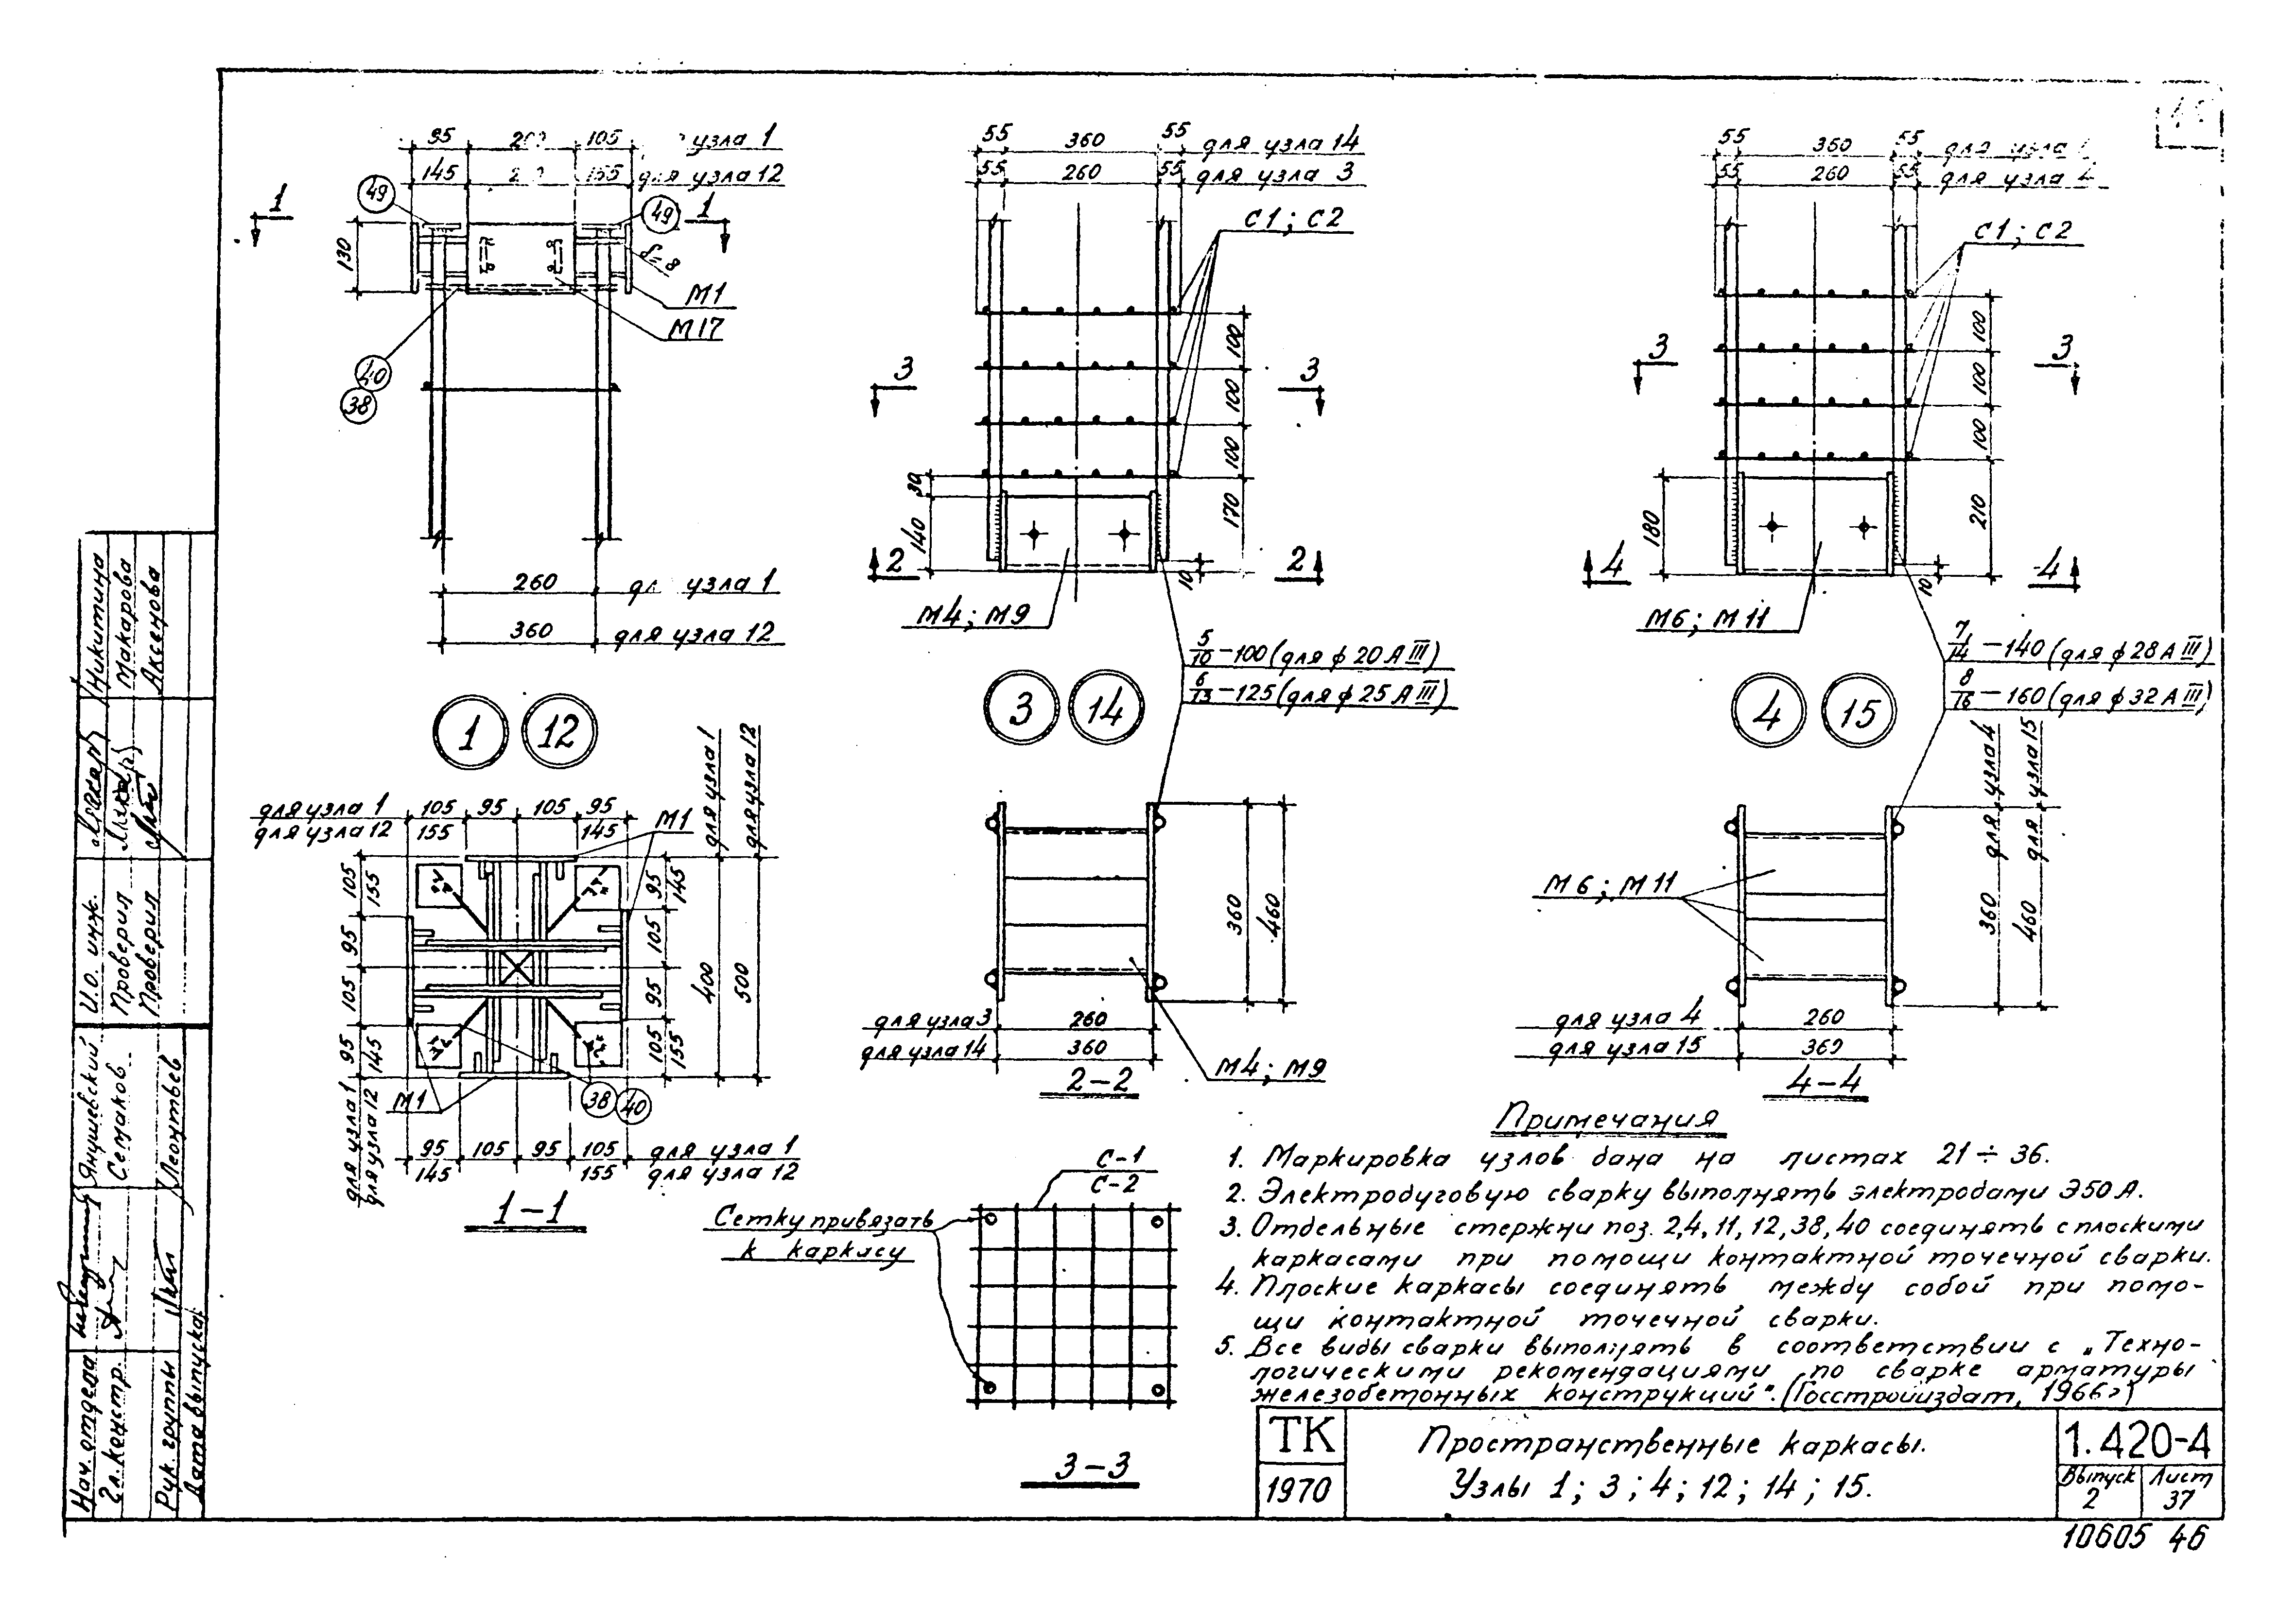 95 105 узла 1
145 155 для узла 12
49
49
1
1
130
δ=8
М1
М17
40
38
260 узла 1
360 для узла 12
1 12
55 360 55 для узла 14
55 260 55 для узла 3
С1; С2
3
3
100
100
100
170
30
140
10
2
2
М4; М9
5/10 – 100 (для ф 20 А III)
6/13 – 125 (для ф 25 А III)
3 14
55 360 55 для узла
55 260 55 для узла
С1; С2
3
3
100
100
100
210
180
10
4
4
М6; М11
7/14 – 140 (для ф 28 А III)
8/16 – 160 (для ф 32 А III)
4 15
для узла 1 105 95 105 95
для узла 12 155 145
М1
для узла 1
для узла 12
105 155
95
105
95 145
95 145
105
95
105 155
400
500
для узла 1
для узла 12
М1
38 40
95 105 95 105 для узла 1
145 155 для узла 12
1–1
360
460
для узла 3 260
для узла 14 360
М4; М9
2–2
М6; М11
360 для узла 4
460 для узла 15
для узла 4 260
для узла 15 360
4–4
С-1
С-2
Сетку привязать
к каркасу
3–3
Примечания
1. Маркировка узлов дана на листах 21÷36.
2. Электродуговую сварку выполнять электродами Э50А.
3. Отдельные стержни поз. 2,4,11,12,38,40 соединять с плоскими
каркасами при помощи контактной точечной сварки.
4. Плоские каркасы соединять между собой при помо-
щи контактной точечной сварки.
5. Все виды сварки выполнять в соответствии с „Техно-
логическими рекомендациями по сварке арматуры
железобетонных конструкций". (Госстройиздат, 1966г)
ТК
1970
Пространственные каркасы.
Узлы 1; 3; 4; 12; 14; 15.
1.420-4
Выпуск 2
Лист 37
10605 46
Нач. отдела Янушевский
Гл. констр. Семаков
Рук. группы Леонтьев
Дата выпуска
И.О. инж. Никитина
Проверил Макарова
Проверил Аксенова